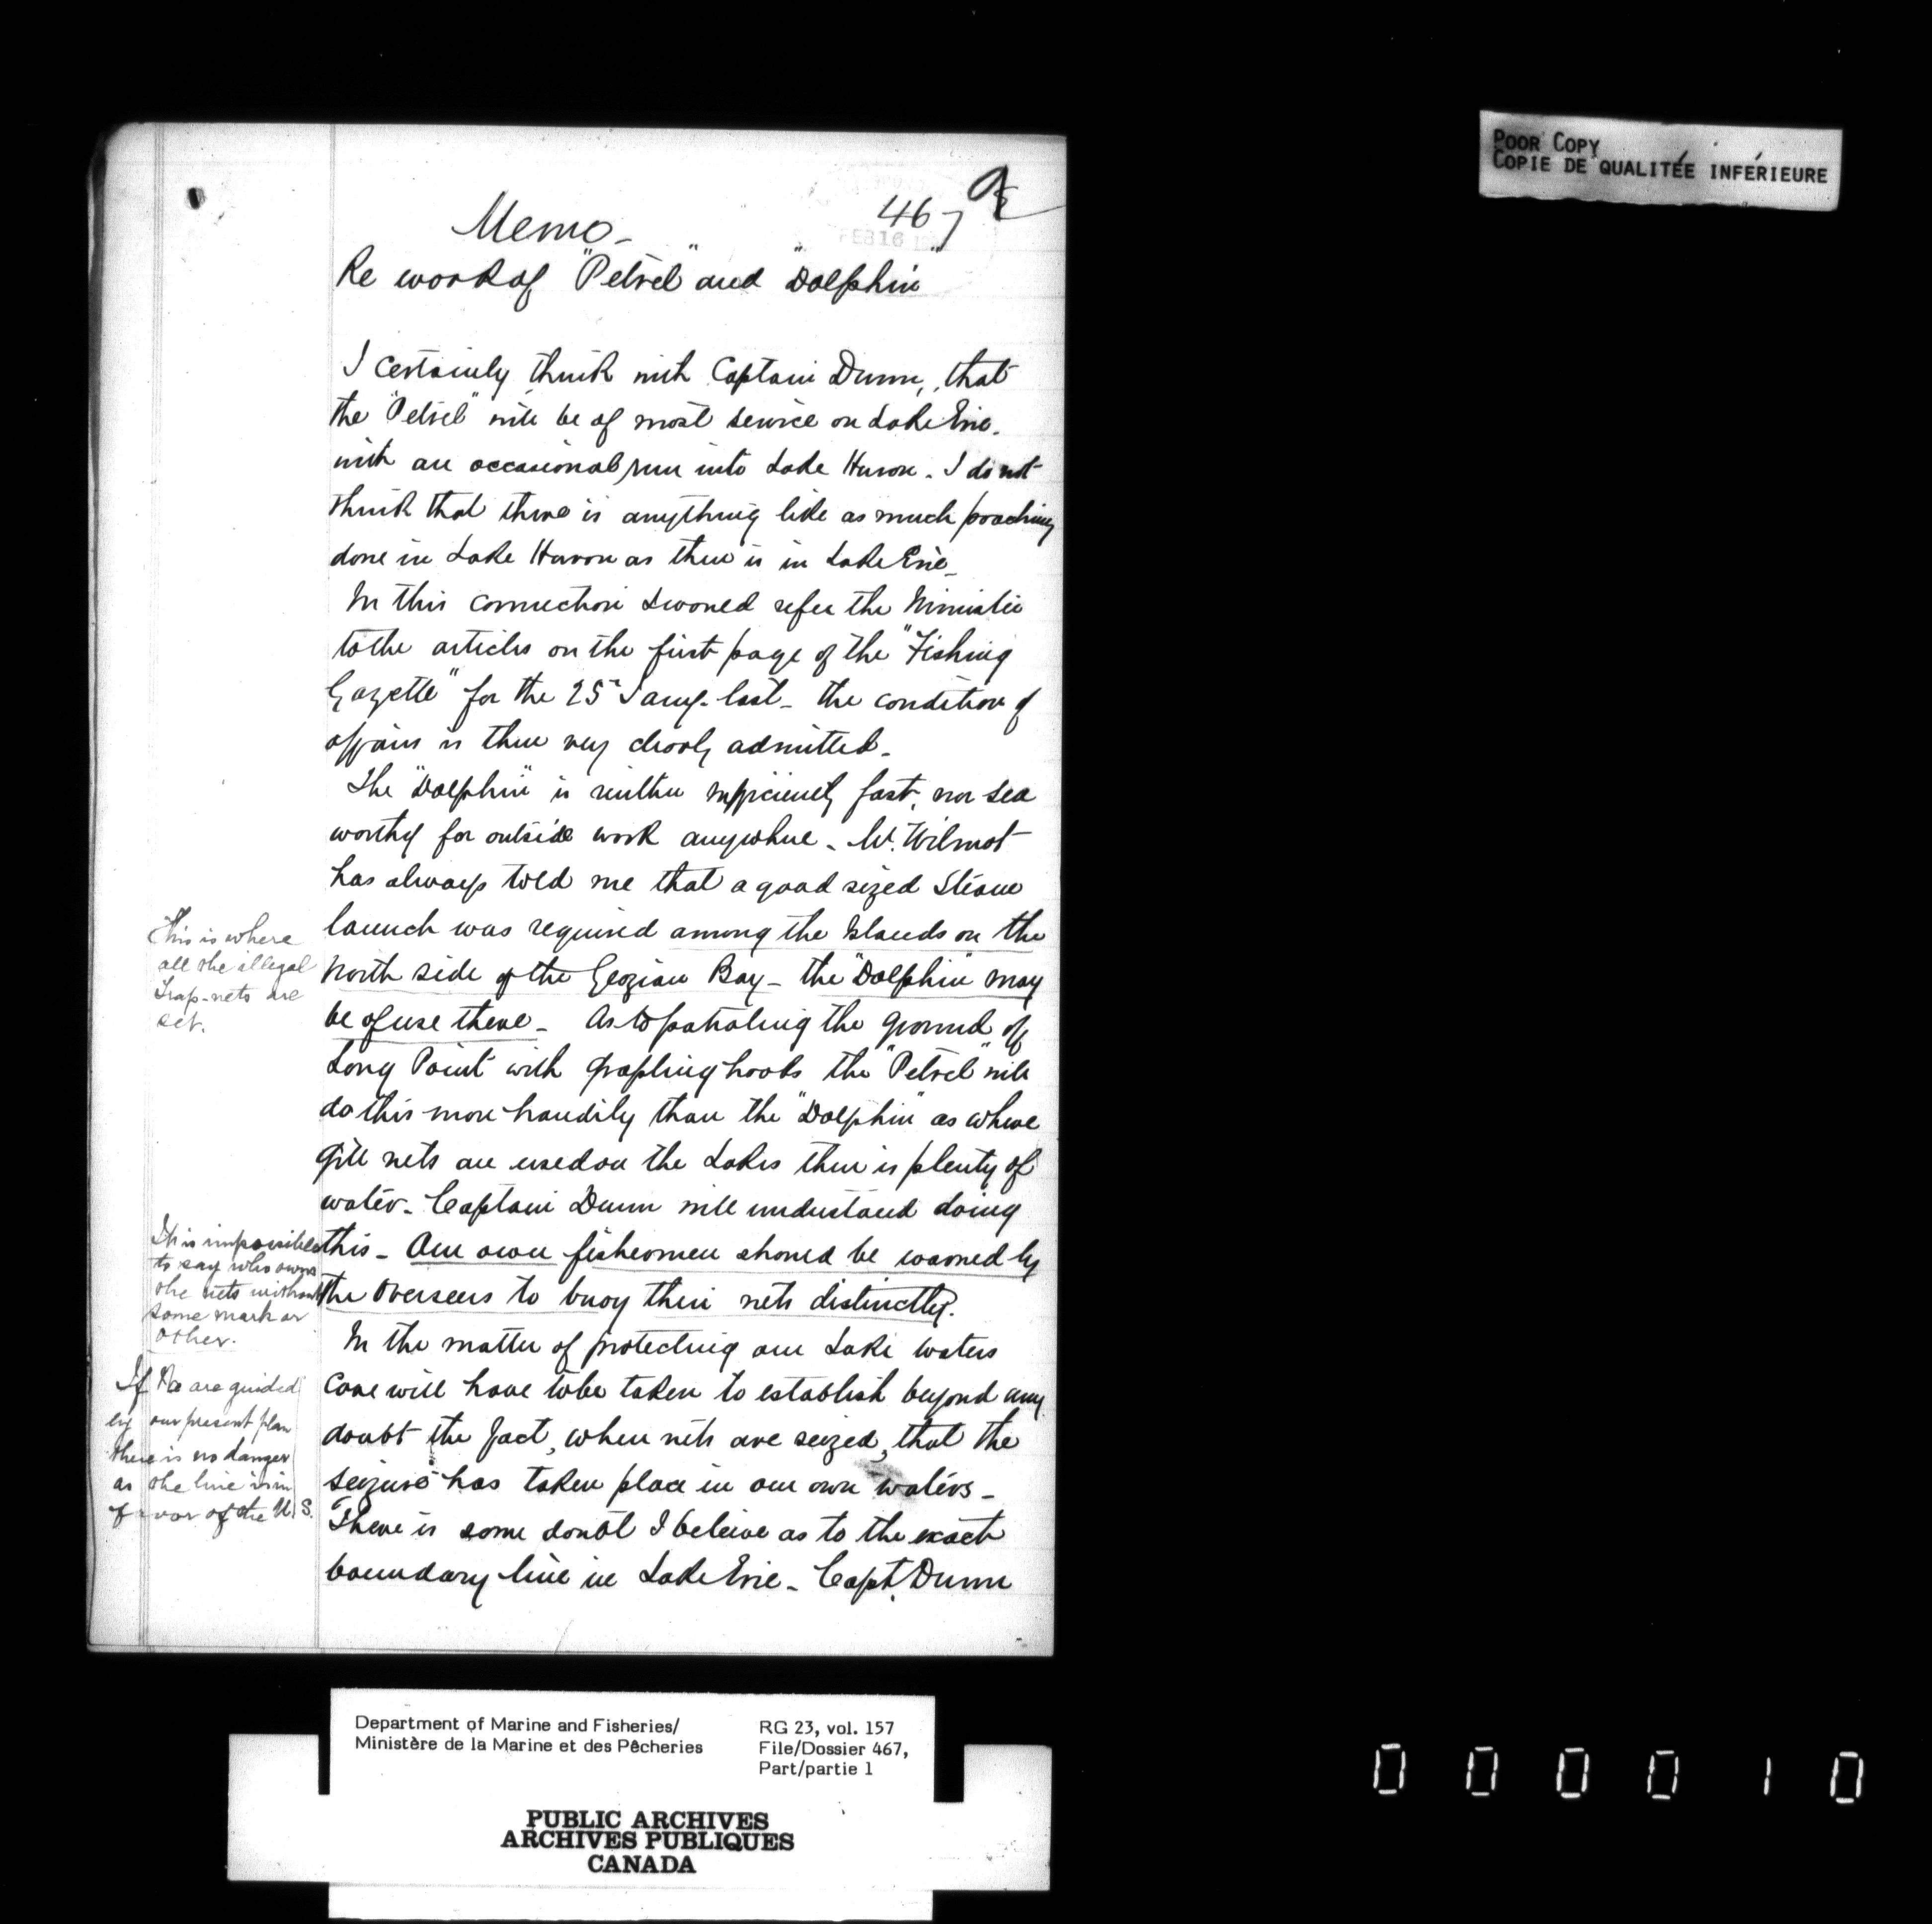 POOR COPY
COPIE DE QUALITÉE INFÉRIEURE
467
FEB 16
Memo-
Re work of "Petrel" and "Dolphin"
I certainly think with Captain Dunn, that
the "Petrel" will be of most service on Lake Erie.
with an occasional run into Lake Huron. I do not
think that there is anything like as much poaching
done in Lake Huron as there is in Lake Erie-
In this connection I would refer the Minister
to the articles on the first page of the "Fishing
Gazette" for the 25th Jany. last- the condition of
affairs is there very clearly admitted-
The "Dolphin" is neither sufficiently fast, nor sea
worthy for outside work anywhere- Mr. Wilmot
has always told me that a good sized Steam
launch was required among the Islands on the
North side of the Georgian Bay- the "Dolphin" may
be of use there- As to patroling the ground off
Long Point with grapling hooks the "Petrel" will
do this more handily than the "Dolphin" as where
Gill nets are used on the Lakes there is plenty of
water- Captain Dunn will understand doing
this- Our own fishermen should be warned by
the Overseers to buoy their nets distinctly.
In the matter of protecting our Lake waters
care will have to be taken to establish beyond any
doubt the fact, when nets are seized, that the
seizure has taken place in our own waters-
There is some doubt I beleive as to the exact
boundary line in Lake Erie- Capt. Dunn
This is where
all the illegal
trap-nets are
set.
It is impossible
to say who owns
the nets without
some mark or
other.
If we are guided
by our present plan
there is no danger
as the line is in
favor of the U.S.
Department of Marine and Fisheries/
Ministère de la Marine et des Pêcheries
RG 23, vol. 157
File/Dossier 467,
Part/partie 1
PUBLIC ARCHIVES
ARCHIVES PUBLIQUES
CANADA
000010